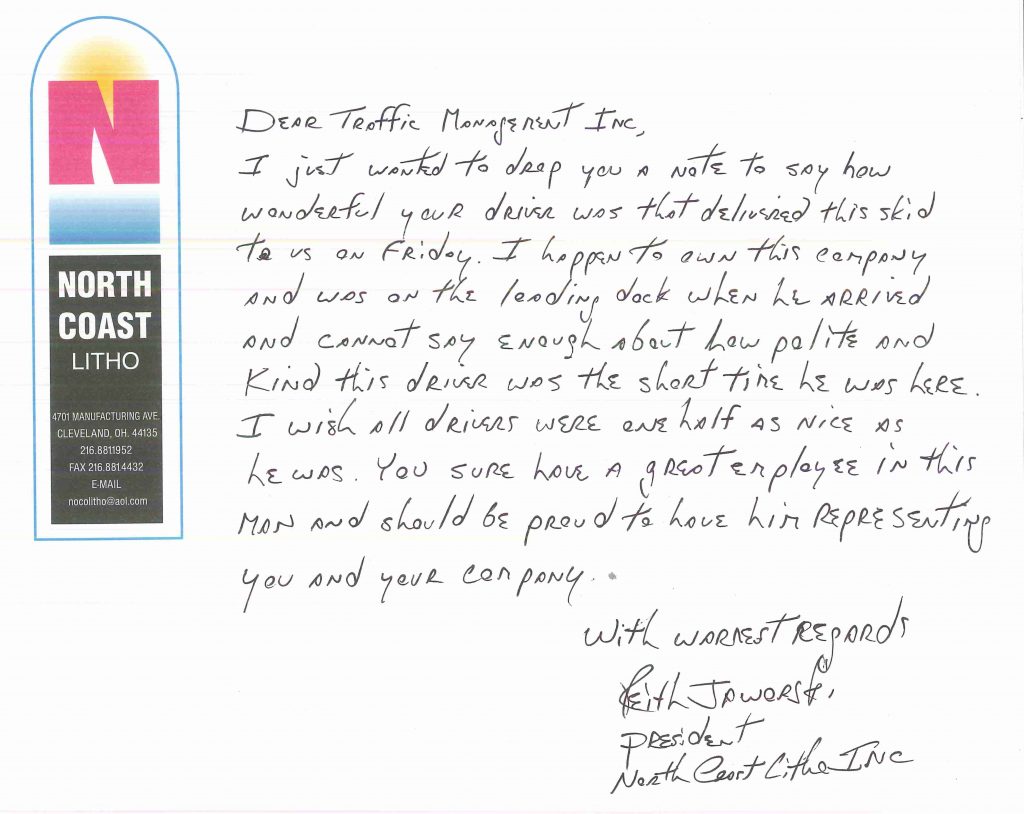 N
NORTH
COAST
LITHO
4701 MANUFACTURING AVE.
CLEVELAND, OH. 44135
216.8811952
FAX 216.881.4432
E-MAIL
nocolitho@aol.com
Dear Traffic Management Inc,
I just wanted to drop you a note to say how
wonderful your driver was that delivered this skid
to us on Friday. I happen to own this company
and was on the loading dock when he arrived
and cannot say enough about how polite and
kind this driver was the short time he was here.
I wish all drivers were one half as nice as
he was. You sure have a great employee in this
man and should be proud to have him representing
you and your company.
With warmest regards
Keith Jaworski
President
North Coast Litho Inc